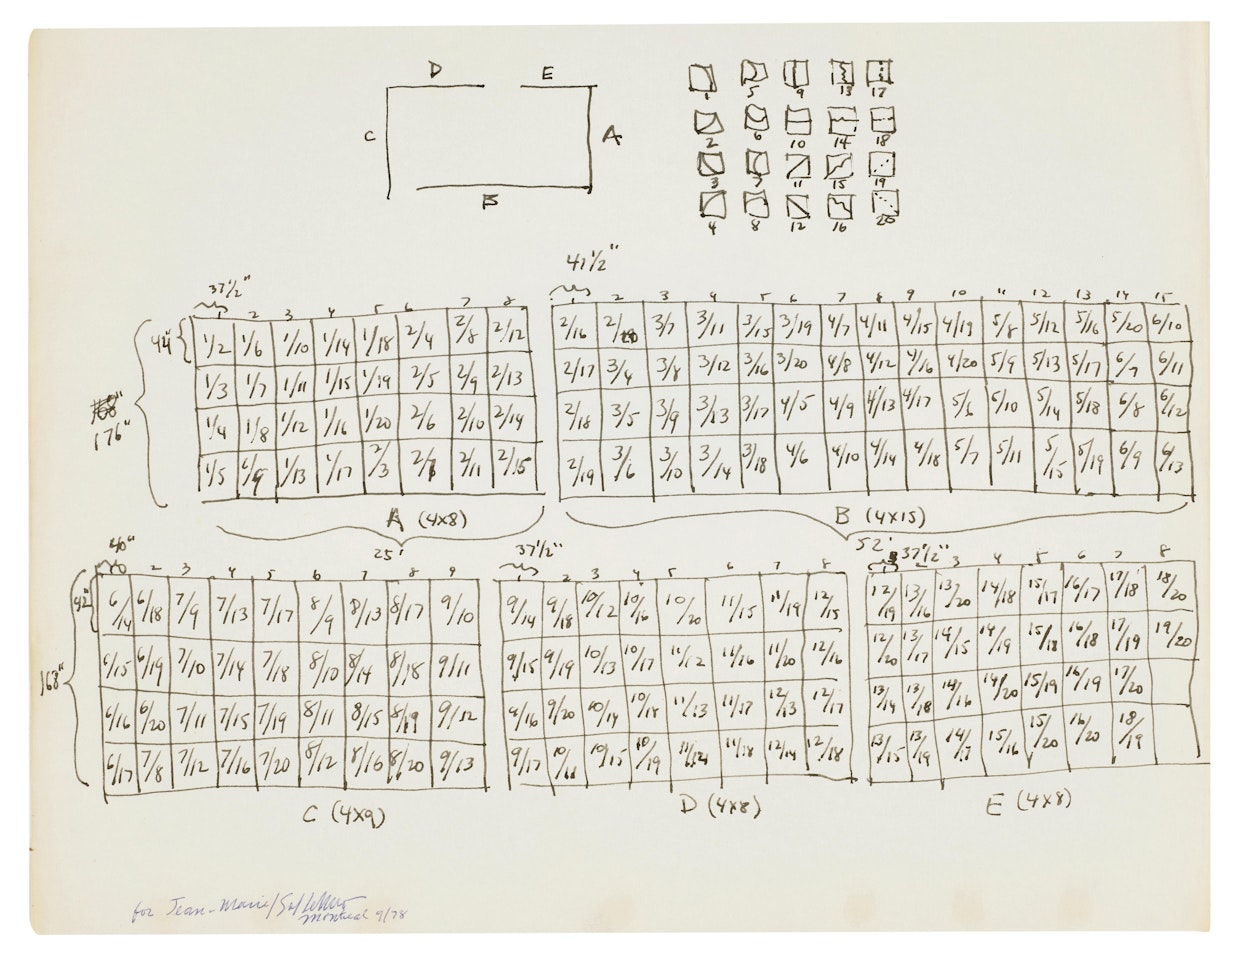 D E
C A
B
1 5 9 13 17
2 6 10 14 18
3 7 11 15 19
4 8 12 16 20
37 1/2"
1 2 3 4 5 6 7 8
44"
176"
1/2 1/6 1/10 1/14 1/18 2/4 2/8 2/12
1/3 1/7 1/11 1/15 1/19 2/5 2/9 2/13
1/4 1/8 1/12 1/16 1/20 2/6 2/10 2/14
1/5 1/9 1/13 1/17 2/3 2/7 2/11 2/15
A (4x8)
25'
41 1/2"
1 2 3 4 5 6 7 8 9 10 11 12 13 14 15
2/16 2/20 3/7 3/11 3/15 3/19 4/7 4/11 4/15 4/19 5/8 5/12 5/16 5/20 6/10
2/17 3/4 3/8 3/12 3/16 3/20 4/8 4/12 4/16 4/20 5/9 5/13 5/17 6/7 6/11
2/18 3/5 3/9 3/13 3/17 4/5 4/9 4/13 4/17 5/6 5/10 5/14 5/18 6/8 6/12
2/19 3/6 3/10 3/14 3/18 4/6 4/10 4/14 4/18 5/7 5/11 5/15 5/19 6/9 6/13
B (4x15)
52'
40"
2 3 4 5 6 7 8 9
42"
168"
6/14 6/18 7/9 7/13 7/17 8/9 8/13 8/17 9/10
6/15 6/19 7/10 7/14 7/18 8/10 8/14 8/18 9/11
6/16 6/20 7/11 7/15 7/19 8/11 8/15 8/19 9/12
6/17 7/8 7/12 7/16 7/20 8/12 8/16 8/20 9/13
C (4x9)
37 1/2"
1 2 3 4 5 6 7 8
9/14 9/18 10/12 10/16 10/20 11/15 11/19 12/15
9/15 9/19 10/13 10/17 11/12 11/16 11/20 12/16
9/16 9/20 10/14 10/18 11/13 11/17 12/13 12/17
9/17 10/11 10/15 10/19 11/14 11/18 12/14 12/18
D (4x8)
37 1/2"
1 2 3 4 5 6 7 8
12/19 13/16 13/20 14/18 15/17 16/17 17/18 18/20
12/20 13/17 14/15 14/19 15/18 16/18 17/19 19/20
13/14 13/18 14/16 14/20 15/19 16/19 17/20
13/15 13/19 14/17 15/16 15/20 16/20 18/19
E (4x8)
for Jean-Marie/Sol LeWitt
Montreal 9/78